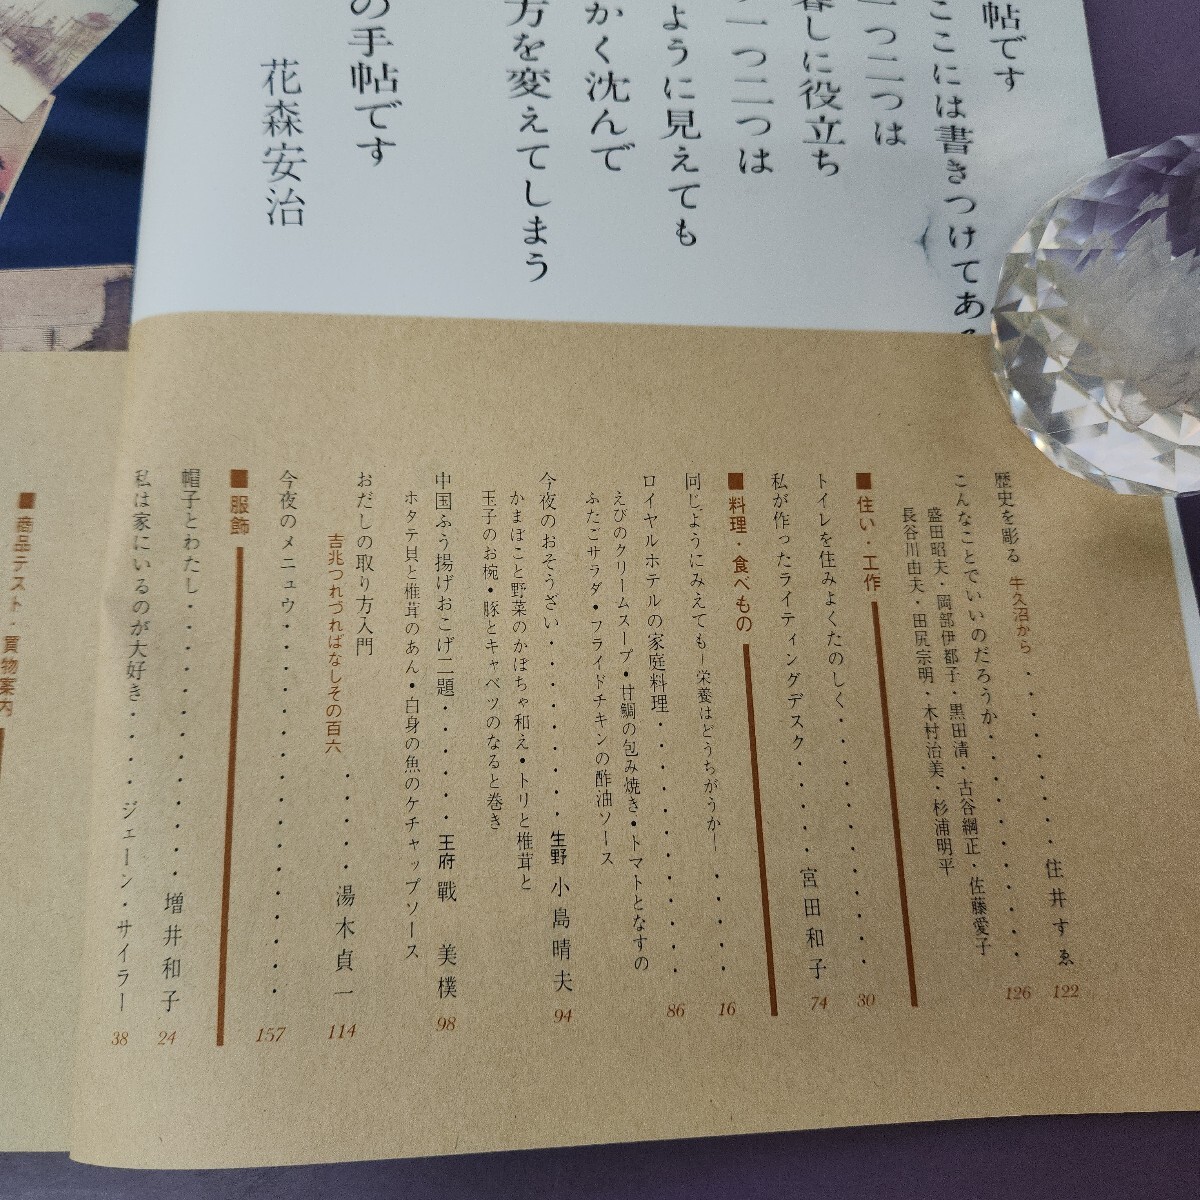 帖です
ここには書きつけてある
一つ二つは
暮しに役立ち
一つ二つは
ように見えても
かく沈んで
方を変えてしまう
の手帖です
花森安治
歴史を彫る 牛久沼から・・・・・・・住井すゑ 122
こんなことでいいのだろうか・・・・・・・・・・126
盛田昭夫・岡部伊都子・黒田清・古谷綱正・佐藤愛子
長谷川由夫・田尻宗明・木村治美・杉浦明平
■住い・工作
トイレを住みよくたのしく・・・・・・・・・・30
私が作ったライティングデスク・・・・・宮田和子 74
■料理・食べもの
同じようにみえても―栄養はどうちがうか―・・・・・16
ロイヤルホテルの家庭料理・・・・・・・・・86
えびのクリームスープ・甘鯛の包み焼き・トマトとなすの
ふたごサラダ・フライドチキンの酢油ソース
今夜のおそうざい・・・・・・・・・生野 小島晴夫 94
かまぼこと野菜のかぼちゃ和え・トリと椎茸と
玉子のお椀・豚とキャベツのなると巻き
中国ふう揚げおこげ二題・・・・・・王府 戰 美樸 98
ホタテ貝と椎茸のあん・白身の魚のケチャップソース
おだしの取り方入門
吉兆つれづればなしその百六・・・・・湯木貞一 114
今夜のメニュウ・・・・・・・・・・・・・・・・157
■服飾
帽子とわたし・・・・・・・・・・・増井和子 24
私は家にいるのが大好き・・・・ジェーン・サイラー 38
■商品テスト・買物案内